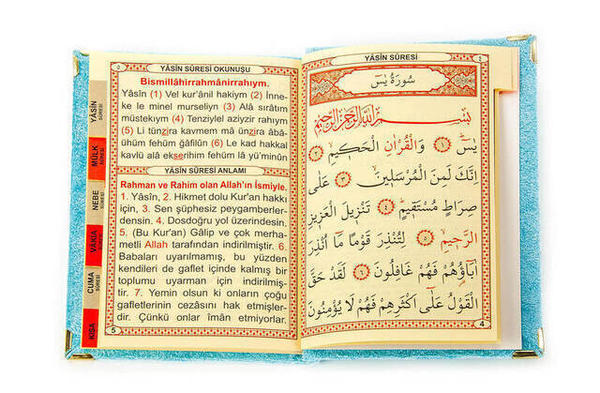 YÂSİN SÛRESİ OKUNUŞU
Bismillâhirrahmânirrahıym.
Yâsîn (1) Vel kur'ânil hakiym (2) İnne-
ke le minel murseliyn (3) Alâ sıratım
müstekıym (4) Tenziylel aziyzir rahıym
(5) Li tünzira kavmem mâ ünzira âbâ-
ühüm fehüm ğafilûn (6) Le kad hakkal
kavlü alâ ekserihim fehüm lâ yü'minûn
YÂSİN SÛRESİ ANLAMI
Rahman ve Rahim olan Allah'ın İsmiyle.
1. Yâsîn, 2. Hikmet dolu Kur'an hakkı
için, 3. Sen şüphesiz peygamberler-
densin. 4. Dosdoğru yol üzerindesin.
5. (Bu Kur'an) Gâlip ve çok merha-
metli Allah tarafından indirilmiştir. 6.
Babaları uyarılmamış, bu yüzden
kendileri de gaflet içinde kalmış bir
toplumu uyarman için indirilmiş-
tir. 7. Yemin olsun ki onların çoğu
gafletlerinin cezâsını hak etmişler-
dir. Çünkü onlar îmân etmiyorlar.
5
YÂSİN
SÛRESİ
MÜLK
SÛRESİ
NEBE
SÛRESİ
VÂKIA
SÛRESİ
CUMA
SÛRESİ
KISA
YÂSİN SÛRESİ
٤
سُورَةُ يٰسٓ
بِسْمِ اللّٰهِ الرَّحْمٰنِ الرَّحِيمِ
يٰسٓ ﴿١﴾ وَالْقُرْاٰنِ الْحَكِيمِ ﴿٢﴾
اِنَّكَ لَمِنَ الْمُرْسَلِينَ ﴿٣﴾ عَلٰى
صِرَاطٍ مُسْتَقِيمٍ ﴿٤﴾ تَنْزِيلَ الْعَزِيزِ
الرَّحِيمِ ﴿٥﴾ لِتُنْذِرَ قَوْمًا مَٓا اُنْذِرَ
اٰبَٓاؤُهُمْ فَهُمْ غَافِلُونَ ﴿٦﴾ لَقَدْ حَقَّ
الْقَوْلُ عَلٰٓى اَكْثَرِهِمْ فَهُمْ لَا يُؤْمِنُونَ
4